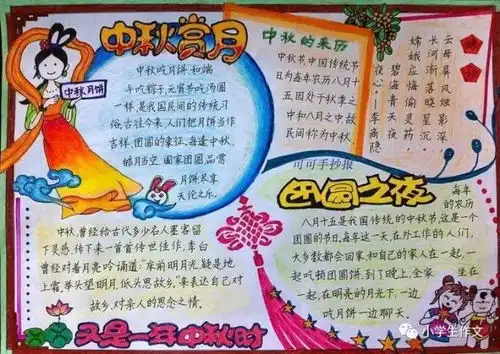 中秋赏月
中秋月饼
中秋吃月饼,和端
午吃粽子,元宵节吃汤圆
一样,是我国民间的传统习
俗,古往今来,人们把月饼当作
吉祥、团圆的象征,每逢中秋,
皓月当空,阖家团圆,品赏
月饼,尽享
天伦之乐。
中秋的来历
中秋节中国传统节
日为每年农历八月十
五因处于秋季之
中和八月之中故
民间称为中秋
可可手抄报
嫦娥
云母屏风烛影深
长河渐落晓星沉
嫦娥应悔偷灵药
碧海青天夜夜心
——李商隐
中秋,曾经给古代多少名人墨客留
下灵感,传下来一首首传世佳作,李白
曾经对着月亮吟诵道:"床前明月光,疑是地
上霜,举头望明月,低头思故乡。"来表达自己对
故乡、对亲人的思念之情。
又是一年中秋时
团圆之夜
每年
的农历
八月十五是我国传统的中秋节,这是一个
团圆的节日。每年这一天,在外工作的人们,
大多数都会回家,和自己的家人在一起,一
起吃顿团圆饭,到了晚上,全家坐在
一起,在明亮的月光下,一边
吃月饼一边聊天。
小学生作文